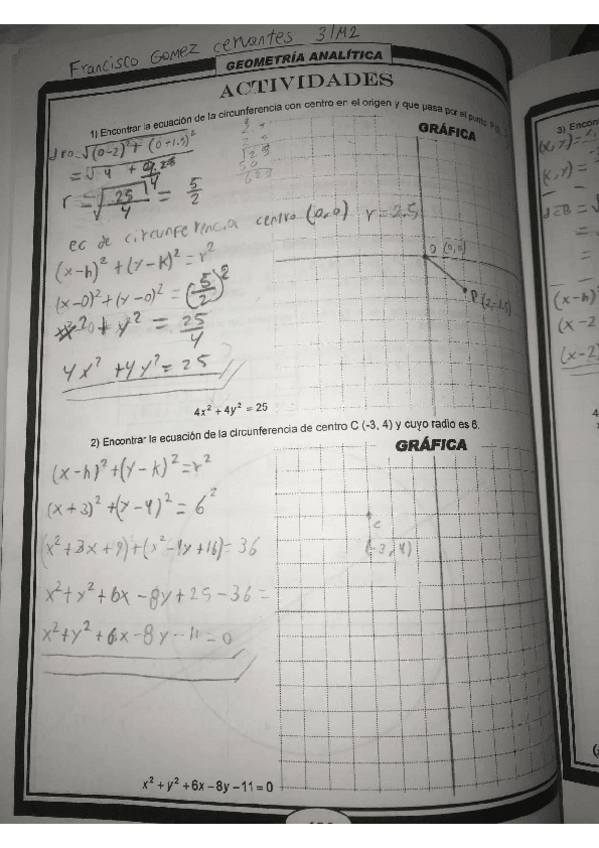 Francisco Gomez cervantes 3/M2
GEOMETRÍA ANALÍTICA
ACTIVIDADES
1) Encontrar la ecuación de la circunferencia con centro en el origen y que pasa por el punto
GRÁFICA
= √(0-2)² + (0+1.5)²
= √4 +
r = √25/4 = 5/2
ec de circunferencia centro (0,0) r = 2.5
(x-h)² + (y-k)² = r²
(x-0)² + (y-0)² = (5/2)²
+ y² = 25/4
4x² + 4y² = 25
(0,0)
P(2,-1.5)
4x² + 4y² = 25
2) Encontrar la ecuación de la circunferencia de centro C (-3, 4) y cuyo radio es 6.
GRÁFICA
(x-h)² + (y-k)² = r²
(x+3)² + (y-4)² = 6²
x² + y² + 6x - 8y + 25 - 36 =
x² + y² + 6x - 8y - 11 = 0
c
(-3,4)
x² + y² + 6x - 8y - 11 = 0
3) Encon
(x-h)²
(x-2
(x-2)